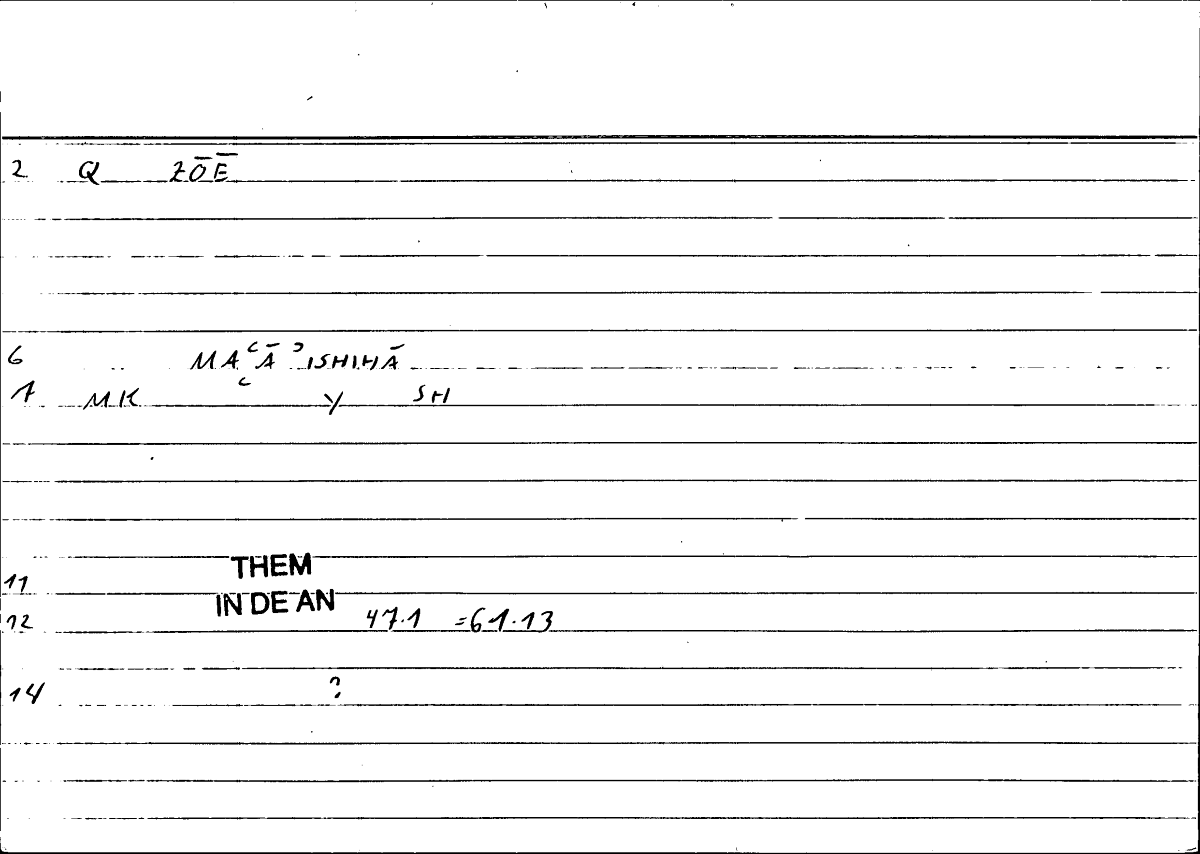 2 Q ZŌĒ
6 MAʿĀʾISHIHĀ
7 MK ʿ Y SH
11 THEM
IN DE AN
12 47.1 =61.13
14 ?